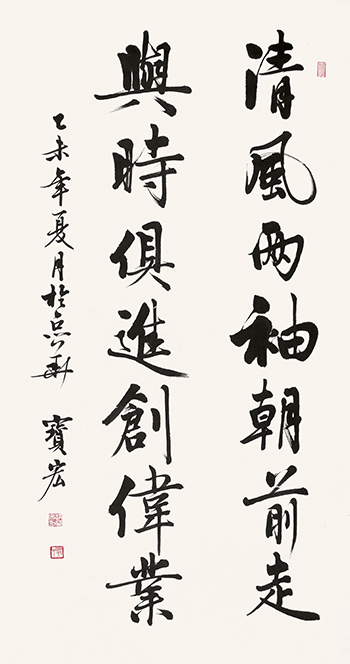 清風两袖朝前走
與時俱進創偉業
乙未年夏月於京華
寶宏